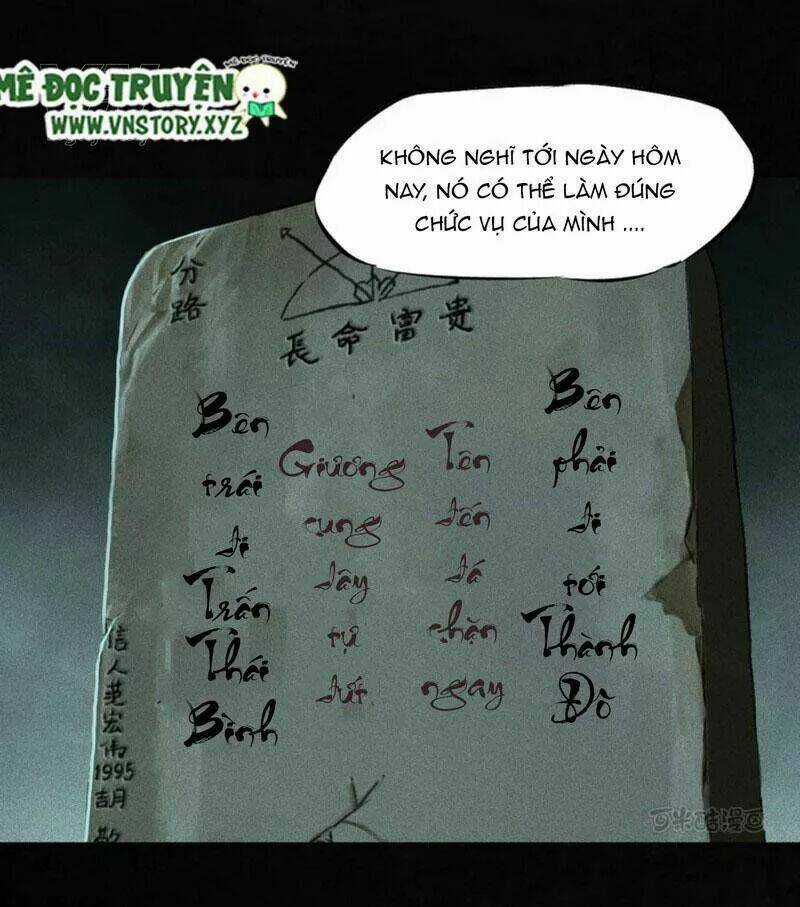 MÊ ĐỌC TRUYỆN
WWW.VNSTORY.XYZ
MÊ ĐỌC TRUYỆN
KHÔNG NGHĨ TỚI NGÀY HÔM
NAY, NÓ CÓ THỂ LÀM ĐÚNG
CHỨC VỤ CỦA MÌNH ....
分路
長命富貴
Bên
trái
đi
Trấn
Thái
Bình
Giương
cung
dây
tự
đứt
Tên
đến
đá
chặn
ngay
Bên
phải
đi
tới
Thành
Đô
信人范宏伟
1995
胡
可米酷漫画